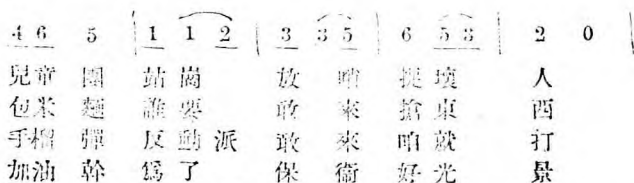 4 6 5 | 1 1 2 | 3 3 5 | 6 5 3 | 2 0 |
兒童 團 站 崗 放 哨 捉 壞 人
包米 麵 誰 要 敢 來 搶 東 西
手榴 彈 反 動 派 敢 來 咱 就 打
加油 幹 爲 了 保 衞 好 光 景